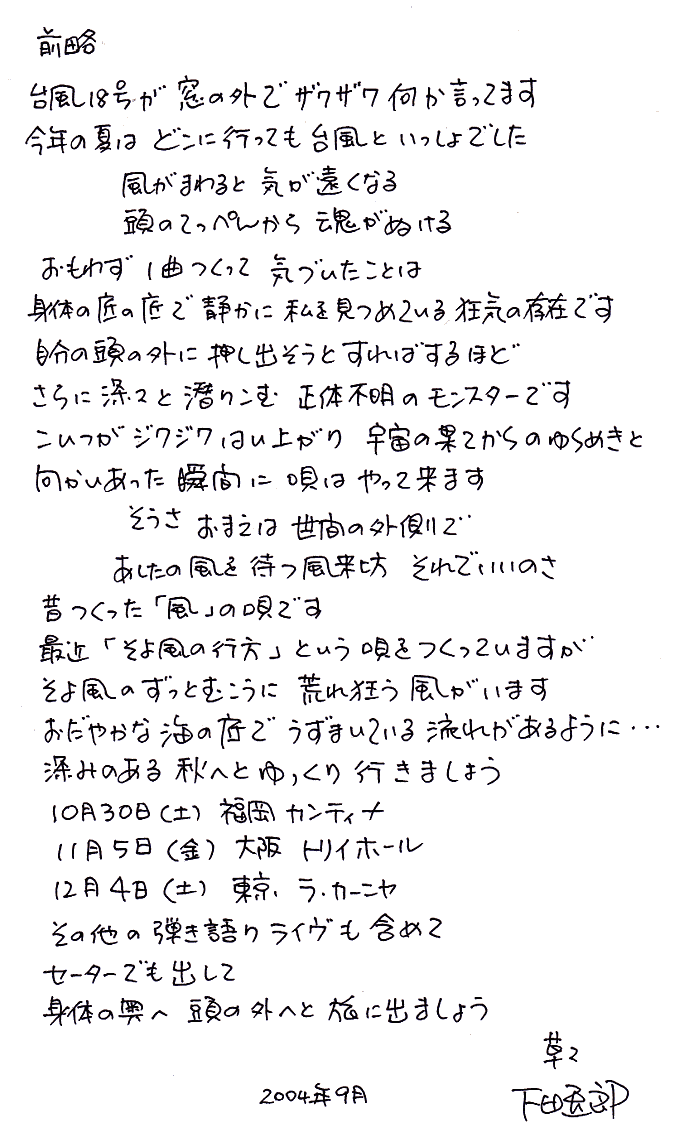 前略
台風18号が 窓の外で ザワザワ 何か言ってます
今年の夏は どこに行っても 台風と いっしょでした
風がまわると 気が遠くなる
頭のてっぺんから 魂がぬける
おもわず 1曲つくって 気づいたことは
身体の底の底で 静かに 私を見つめている 狂気の存在です
自分の頭の外に 押し出そうと すればするほど
さらに 深々と 潜りこむ 正体不明の モンスターです
こいつが ジワジワ はい上がり 宇宙の果てからの ゆらめきと
向かいあった 瞬間に 唄は やって来ます
そうさ おまえは 世間の外側で
あしたの風を 待つ風来坊 それでいいのさ
昔つくった「風」の唄です
最近「そよ風の行方」という 唄をつくっていますが
そよ風の ずっとむこうに 荒れ狂う 風がいます
おだやかな 海の底で うずまいている 流れがあるように…
深みのある 秋へと ゆっくり 行きましょう
10月30日(土) 福岡 カンティナ
11月5日(金) 大阪 トリイホール
12月4日(土) 東京 ラ・カーニャ
その他の 弾き語り ライヴも 含めて
セーターでも 出して
身体の奥へ 頭の外へと 旅に出ましょう
草々
2004年9月
下田逸郎